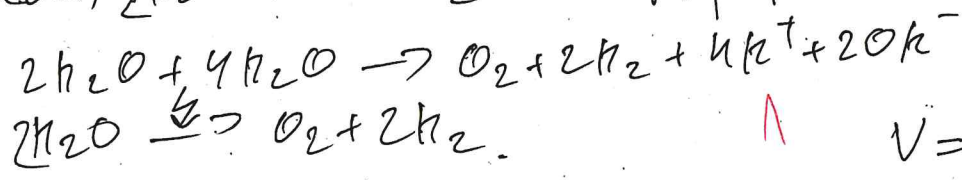 2H₂O + 4H₂O → O₂ + 2H₂ + 4H⁺ + 2OH⁻
2H₂O → O₂ + 2H₂. V =